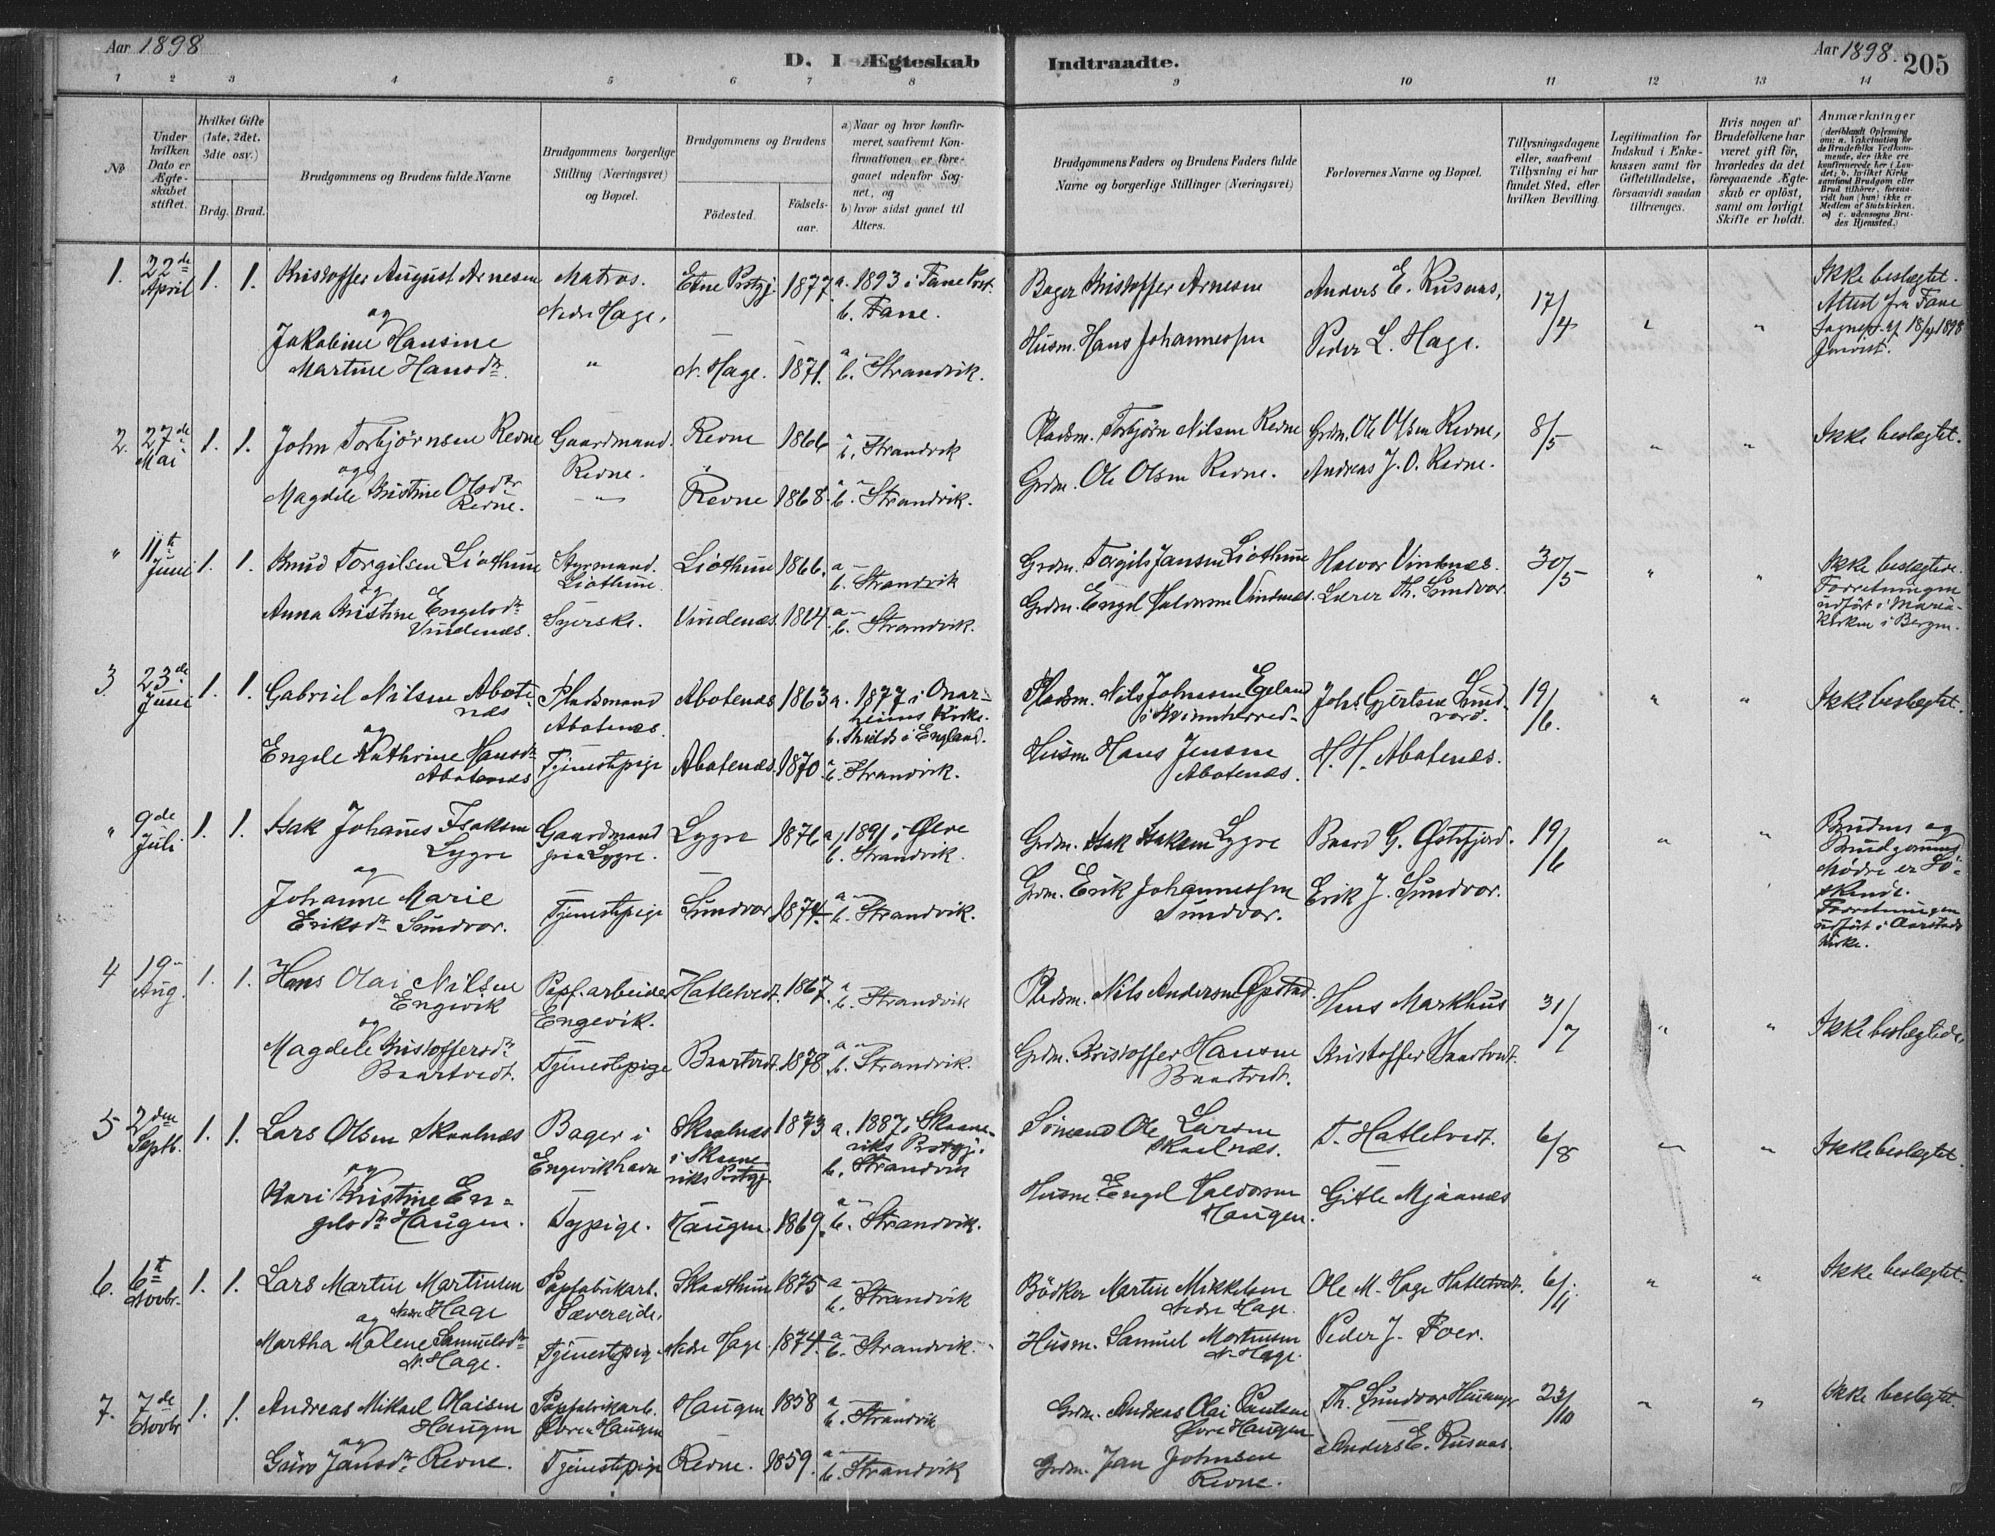 Aar 1898
D. I Ægteskab
Indtraadte.
Aar 1898.
205
1 2 3 4 5 6 7 8 9 10 11 12 13 14
No
Under hvilken Dato er Ægteskabet stiftet.
Hvilket Gifte (1ste, 2det, 3die osv.)
Brdg. Brud.
Brudgommens og Brudens fulde Navne
Brudgommens borgerlige Stilling (Næringsvei) og Bopæl.
Brudgommens og Brudens
Födested.
Födsels-aar.
a) Naar og hvor konfirmeret, saafremt Konfirmationen er foregaaet udenfor Sognet, og
b) hvor sidst gaaet til Alters.
Brudgommens Faders og Brudens Faders fulde Navne og borgerlige Stillinger (Næringsvei)
Forlovernes Navne og Bopæl.
Tillysningsdagene eller, saafremt Tillysning ei har fundet Sted, efter hvilken Bevilling
Legitimation for Indskud i Enkekassen samt for Giftetilladelse, forsaavidt saadan tiltrænges.
Hvis nogen af Brudefolkene har været gift før, hvorledes da det foregaaende Ægteskab er oplöst, samt om lovligt Skifte er holdt.
Anmærkninger (deriblandt Oplysning om: a. Vakcination for de Brudefolks Vedkommende, der ikke ere konfirmerede her i Landet; b. hvilket Kirkesamfund Brudgom eller Brud tilhörer, forsaavidt han (hun) ikke er Medlem af Statskirken, og c. udensogns Brudes Hjemsted.)
1. 22de April 1. 1. Kristoffer August Arnesen Matros. Nedre Hage, Etne Prstgj. 1877. a. 1893 i Fane Prst. b. Fane. Bager Kristoffer Arnesen Anders E. Rusnæs, 17/4 " " Ikke beslægtet. Attest fra Fane Sognepr. af 18/4 1898 forevist.
og
Jakobine Hansine Martine Hansdtr. " N. Hage. 1871. a. — b. Strandvik. Husm. Hans Johannessen Peder L. Hage.
2. 27de Mai 1. 1. John Torbjørnsen Revne Gaardmand. Revne. Revne 1866 a. — b. Strandvik Pladsm. Torbjørn Nilsen Revne Grdm. Ole Olsen Revne, 8/5 " " Ikke beslægtet.
og
Magdele Kristine Olsdtr Revne. — Revne 1868. a. — b. Strandvik. Grdm. Ole Olsen Revne. Andreas J. O. Revne.
" 11te Juni 1. 1. Knud Torgilsen Liothun Styrmand. Liothun. Liothun 1866. a — b. Strandvik Grdm. Torgils Jansen Liothun Halvor Vindenæs. 30/5 " " Ikke beslægtede. Forretningen udført i Mariakirken i Bergen.
og
Anna Kristine Engelsdtr Vindenæs. Syerske. Vindenæs. 1864. a — b. Strandvik. Grdm. Engel Haldorsen Vindenæs. Lærer Th. Sundvor.
3. 23de Juni 1. 1. Gabriel Nilsen Abotenæs Pladsmand Abotenæs. Abotenæs 1863 a. 1877 i Onarheims Kirke. b. Shields i England. Pladsm. Nils Johnsen Egeland i Kvinnherred— Johs. Gjertsen Sundvord. 19/6. " " Ikke beslægtet.
og
Engele Kathrine Hansdtr Abotenæs Tjenestepige Abotenæs. 1870 a b. Strandvik. Husm. Hans Jensen Abotenæs. H. H. Abotenæs.
" 9de Juli 1. 1. Isak Johanes Isaksen Lygre Gaardmand Lygre. Lygre 1876 a. 1891 i Ølve b. Strandvik. Grdm. Isak Isaksen Lygre Baard G. Østefjord. 19/6 " " Brudens og Brudgommens Mødre er Söskende. Forretningen udført i Aarstads Kirke.
og
Johanne Marie Eriksdtr Sundvor. Tjenestepige Sundvor 1874. a — b. Strandvik. Grdm. Erik Johannessen Sundvor. Erik J. Sundvor.
4 19 Aug. 1. 1. Hans Olai Nilsen Engevik Papf.arbeider Engevik. Hatletvedt. 1867. a b. Strandvik Pladsm. Nils Andersen Øpstad. Hans Markhus 31/7 " " Ikke beslægtede.
og
Magdele Kristoffersdtr Baartvedt. Tjenestepige Baartvedt. 1878 a — b. Strandvik. Grdm. Kristoffer Hansen Baartvedt. Kristoffer Baartvedt.
5 2den Septb. 1. 1. Lars Olsen Skaalnæs Bager i Engevikhavn Skaalnæs i Skaaneviks Prstgj. 1873 a. 1887 i Skaaneviks Prstgj. b. Strandvik Sömand Ole Larsen Skaalnæs. T. Hatletvedt. 6/8 " " Ikke beslægtet.
og
Kari Kristine Engelsdtr Haugen. Tj.pige. Haugen. 1869. a — b. Strandvik. Husm. Engel Haldorsen Haugen. Gitle Mjaanæs
6. 6te Novbr. 1. 1. Lars Martin Martinsen Nedre Hage Papfabrikarb. Sævereide. Skaathun 1875 a — b. Strandvik Bödker Martin Mikkelsen Nedre Hage. Ole M. Hage Hatletvedt. 6/11 " " Ikke beslægtet.
og
Martha Malene Samuelsdtr N. Hage. Tjenestepig. Nedre Hage. 1874. a — b. Strandvik. Husm. Samuel Mortensen N. Hage. Peder J. Foer.
7. 7de Novbr 1. 1. Andreas Mikael Olaisen Haugen Papfabrikarb. Øvre Haugen Haugen 1858 a — b. Strandvik Grdm. Andreas Olai Paulsen Øvre Haugen Th. Sundvor 23/10 " " Ikke beslægtet.
og
Guro Jansdtr. Revne. Tjenestepige Revne. 1859. a — b. Strandvik Grdm. Jan Johnsen Revne. Anders E. Rusnæs.